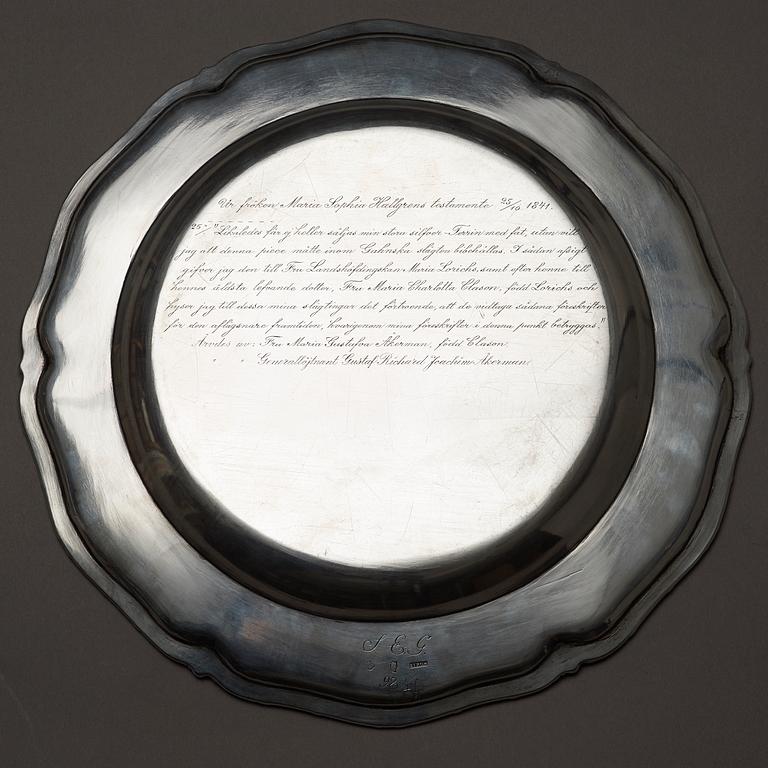 Ur fröken Maria Sophia Hallgrens testamente 25/10 1841.
25° "Likaledes får ej heller säljas min stora silfver-Terrin med fat, utan vill
jag att denna piece måtte inom Gahnska slägten bibehållas. I sådan afsigt
gifver jag den till Fru Landshöfdingskan Maria Lorichs, samt efter henne till
hennes äldsta lefvande dotter, Fru Maria Charlotta Clason, född Lorichs och
hyser jag till dessa mina slägtingar det förtroende, att de vidtaga sådana föreskrifter
för den aflägsnare framtiden, hvarigenom mina föreskrifter i denna punkt betryggas."
Ärvdes av: Fru Maria Gustafva Åkerman, född Clason.
" " Generallöjtnant Gustaf Richard Joachim Åkerman.
S E G